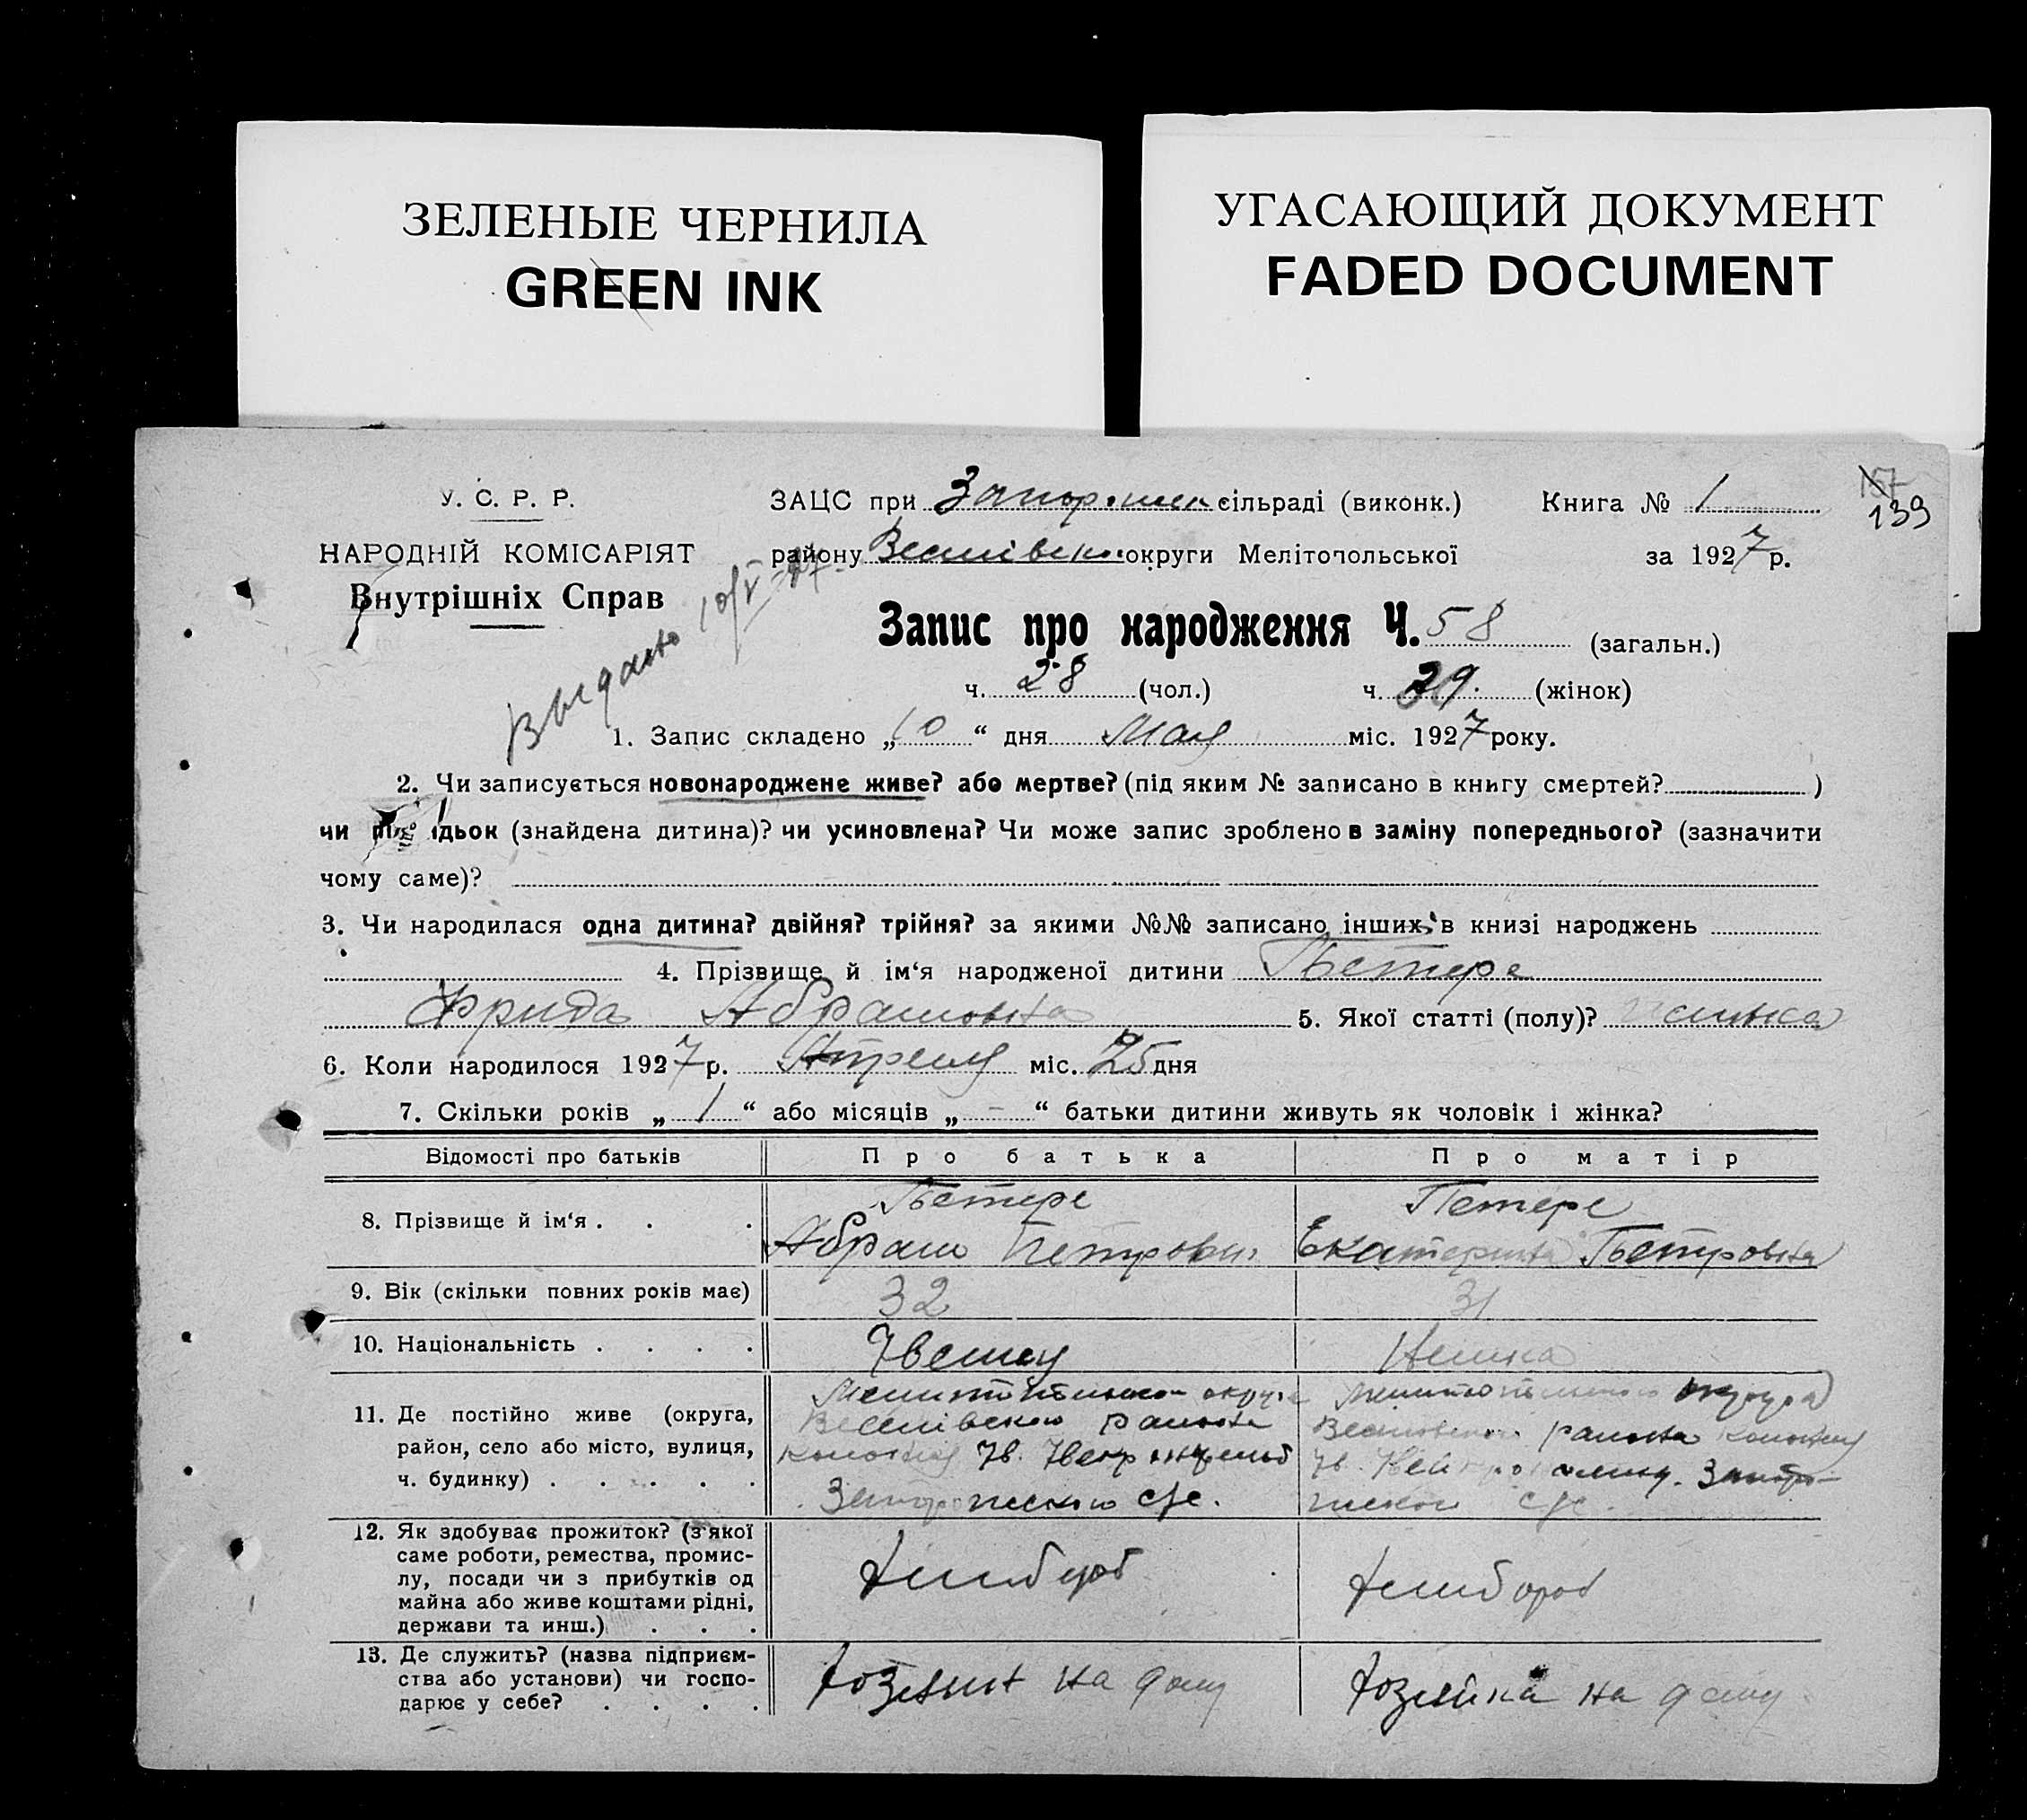 ЗЕЛЕНЫЕ ЧЕРНИЛА
GREEN INK
УГАСАЮЩИЙ ДОКУМЕНТ
FADED DOCUMENT
157
139
У. С. Р. Р.
НАРОДНІЙ КОМІСАРІЯТ
Внутрішніх Справ
Выдано 10/V-27
ЗАЦС при сільраді (виконк.) Книга № 1
району округи Мелітопольської за 1927 р.
Запис про народження Ч. 58 (загальн.)
ч. 28 (чол.) ч. 29. (жінок)
1. Запис складено „10“ дня Мая міс. 1927 року.
2. Чи записується новонароджене живе? або мертве? (під яким № записано в книгу смертей? )
чи (знайдена дитина)? чи усиновлена? Чи може запис зроблено в заміну попереднього? (зазначити
чому саме)?
3. Чи народилася одна дитина? двійня? трійня? за якими №№ записано інших в книзі народжень
4. Прізвище й ім‘я народженої дитини Петерс
Фрида Абрамовна 5. Якої статті (полу)?
6. Коли народилося 1927 р. Апреля міс. 25 дня
7. Скільки років „1“ або місяців „-“ батьки дитини живуть як чоловік і жінка?
Відомості про батьків Про батька Про матір
8. Прізвище й ім‘я . . . Петерс Петерс
Абрам Петрович Екатерина Петровна
9. Вік (скільки повних років має) 32 31
10. Національність . . . . Немец Немка
11. Де постійно живе (округа, район, село або місто, вулиця, ч. будинку) . . . . .
Мелитопольской округа
района
колония
с/с.
Мелитопольского округа
района колония
с/с.
12. Як здобуває прожиток? (з якої саме роботи, ремества, промислу, посади чи з прибутків од майна або живе коштами рідні, держави та инш.) . . .
Хлебороб Хлебороб
13. Де служить? (назва підприємства або установи) чи господарює у себе? . . . .
Хозяин на дому Хозяйка на дому